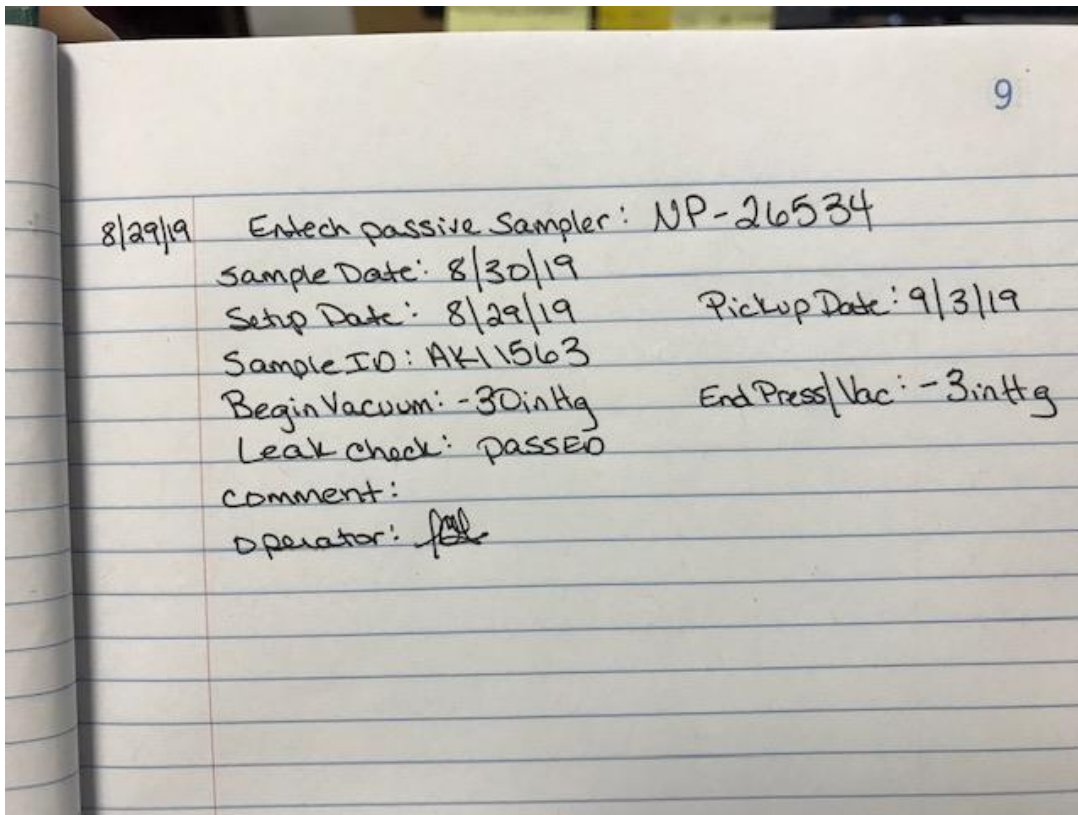 9
8/29/19 Entech passive Sampler: NP-26534
Sample Date: 8/30/19
Setup Date: 8/29/19 Pickup Date: 9/3/19
Sample ID: AK11563
Begin Vacuum: -30inHg End Press/Vac: -3inHg
Leak check: PASSED
comment:
operator: